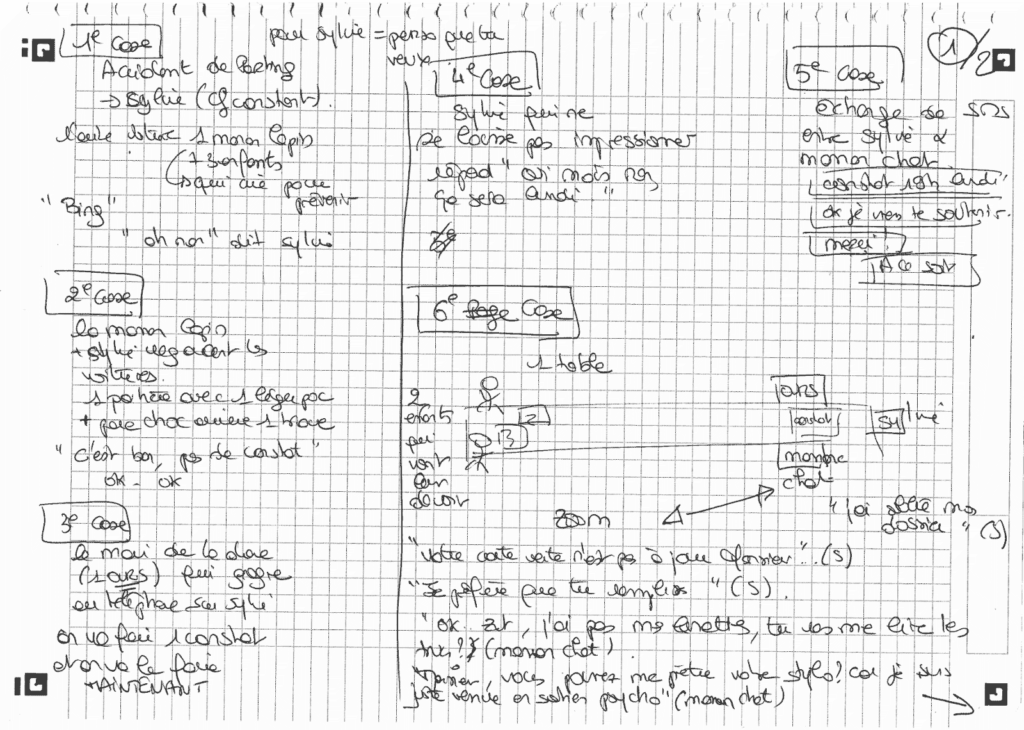 1e Case
pour Sylvie = pense que tu
veux
Accident de parking
→ Sylvie (cf constat).
1 maman lapin
(+ 3 enfants
qui crie pour
prévenir
"Bing"
"oh non" dit Sylvie
2e Case
la maman lapin
+ Sylvie regardent les
voitures.
1 portière avec 1 léger poc
+ pare choc arrière 1 trace
"c'est bon, pas de constat"
ok - ok
3e Case
le mari de la dame
(1 OURS) qui grogne
au téléphone sur Sylvie
on va faire 1 constat
et on va le faire
MAINTENANT
4e Case
Sylvie qui ne
se laisse pas impressionner
répond "oui mais non,
ça sera lundi".
5e Case
échange de SMS
entre Sylvie &
maman chat.
constat 18h lundi
ok je viens te soutenir.
merci.
A ce soir
1/2
6e Case
1 table
2
enfants
qui
font
leur
devoir
ours
constat
Sylvie
maman
chat
zoom
"j'ai oublié mon
dossier" (S)
"votre carte verte n'est pas à jour Monsieur". (S)
"Je préfère que tu remplisses" (S).
"ok. zut, j'ai pas mes lunettes, tu vas me lire les
trucs?" (maman chat).
vous pouvez me prêter votre stylo? car je suis
juste venue en soutien psycho" (maman chat)